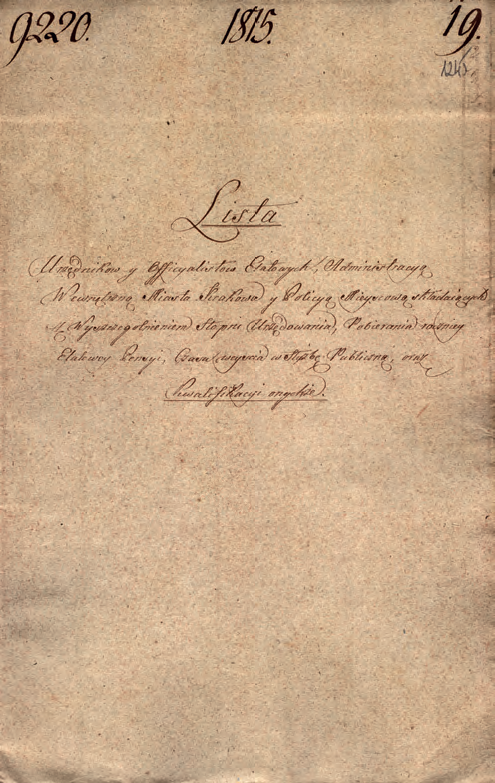 9220. 1815. 19.
Lista
Urzędników y Officyalistów Etatowych, Administracyą
Wewnętrzną Miasta Krakowa y Policyą Mieyscową składaiących
z Wyszczególnieniem Stopni Urzędowania, Pobierania roczney
Etatowey Pensyi, Czasu weyścia w Służbę Publiczną, oraz
Kwalifikacyi onychże.